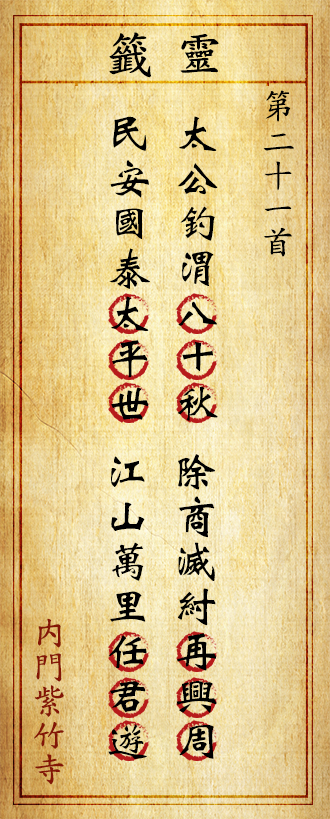 靈籤
第二十一首
太公釣渭八十秋
除商滅紂再興周
民安國泰太平世
江山萬里任君遊
內門紫竹寺